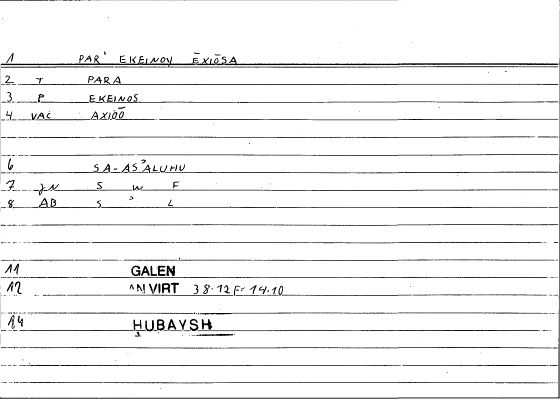 1 PAR' EKEINOY ĒXIŌSA
2 T PARA
3 P EKEINOS
4 VAC AXIOŌ
6 SA-AS'ALUHU
7 JN S W F
8 AB S ' L
11 GALEN
12 AN VIRT 38.12 F= 14.10
14 ḤUBAYSH